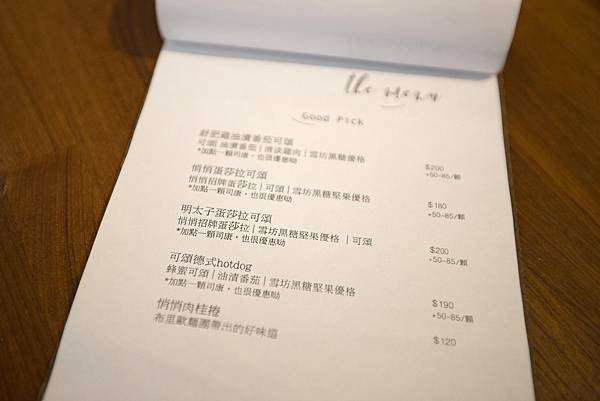 the menu
GOOD PICK
舒肥雞油漬番茄可頌
可頌 油漬番茄｜清淡雞肉｜雪坊黑糖優格
*加點一顆司康，也很優惠呦
$200
+50-85/顆
悄悄蛋莎拉可頌
悄悄招牌蛋莎拉｜可頌｜雪坊黑糖堅果優格
*加點一顆司康，也很優惠呦
$180
+50-85/顆
明太子蛋莎拉可頌
悄悄招牌蛋莎拉｜雪坊黑糖堅果優格 ｜可頌
*加點一顆司康，也很優惠呦
$200
+50-85/顆
可頌德式hotdog
蜂蜜可頌｜油漬番茄｜雪坊黑糖堅果優格
*加點一顆司康，也很優惠呦
$190
+50-85/顆
悄悄肉桂捲
布里歐麵團帶出的好味道
$120